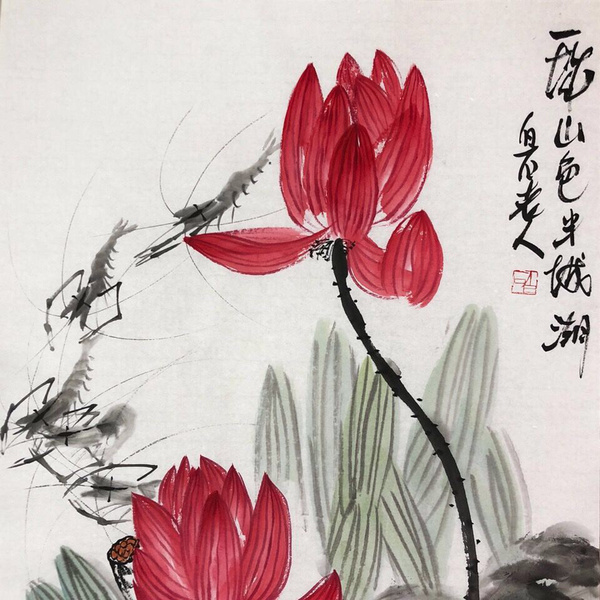 一城山色半城湖
白石老人